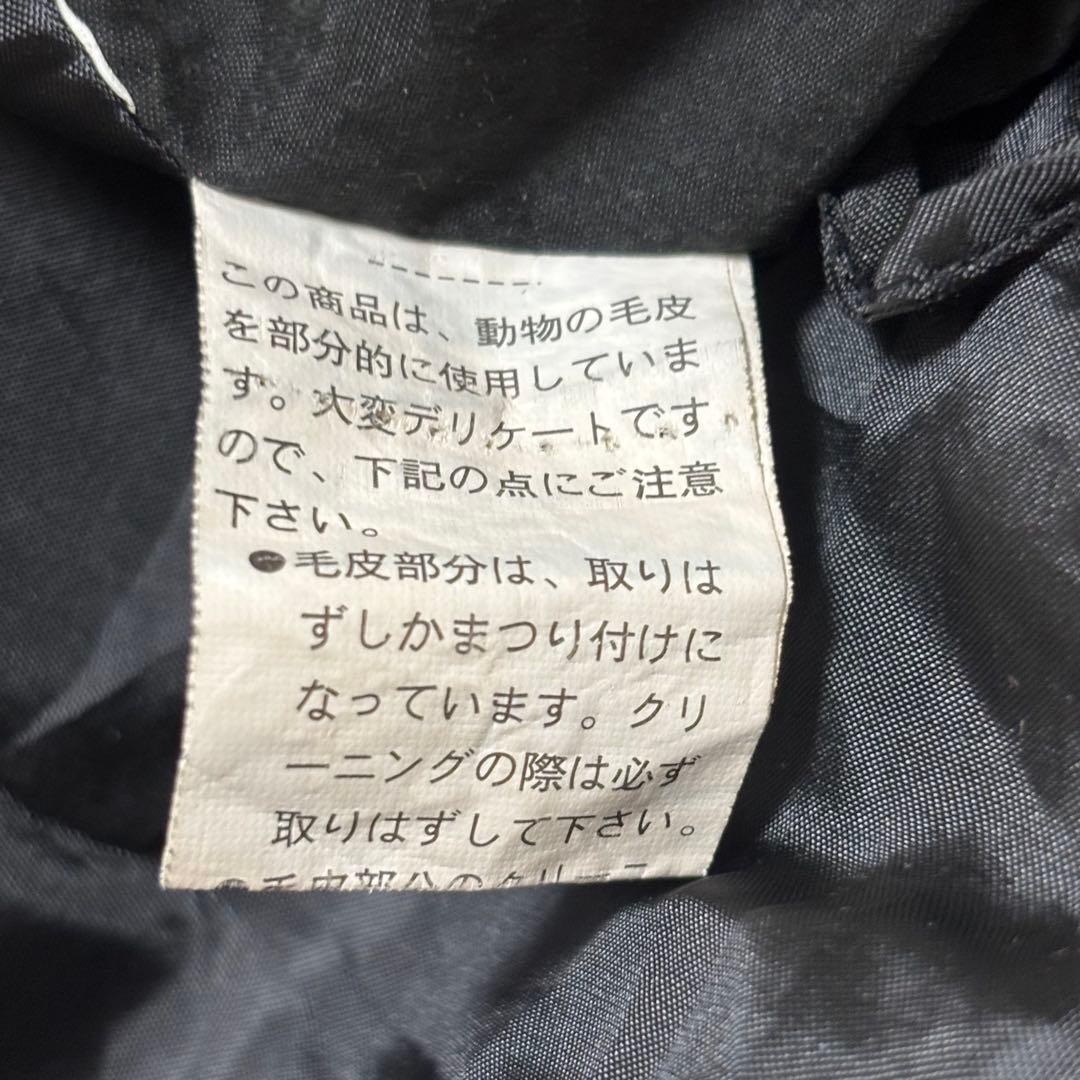 この商品は、動物の毛皮
を部分的に使用していま
す。大変デリケートです
ので、下記の点にご注意
下さい。
●毛皮部分は、取りは
ずしかまつり付けに
なっています。クリ
ーニングの際は必ず
取りはずして下さい。
●毛皮部分のクリーニ